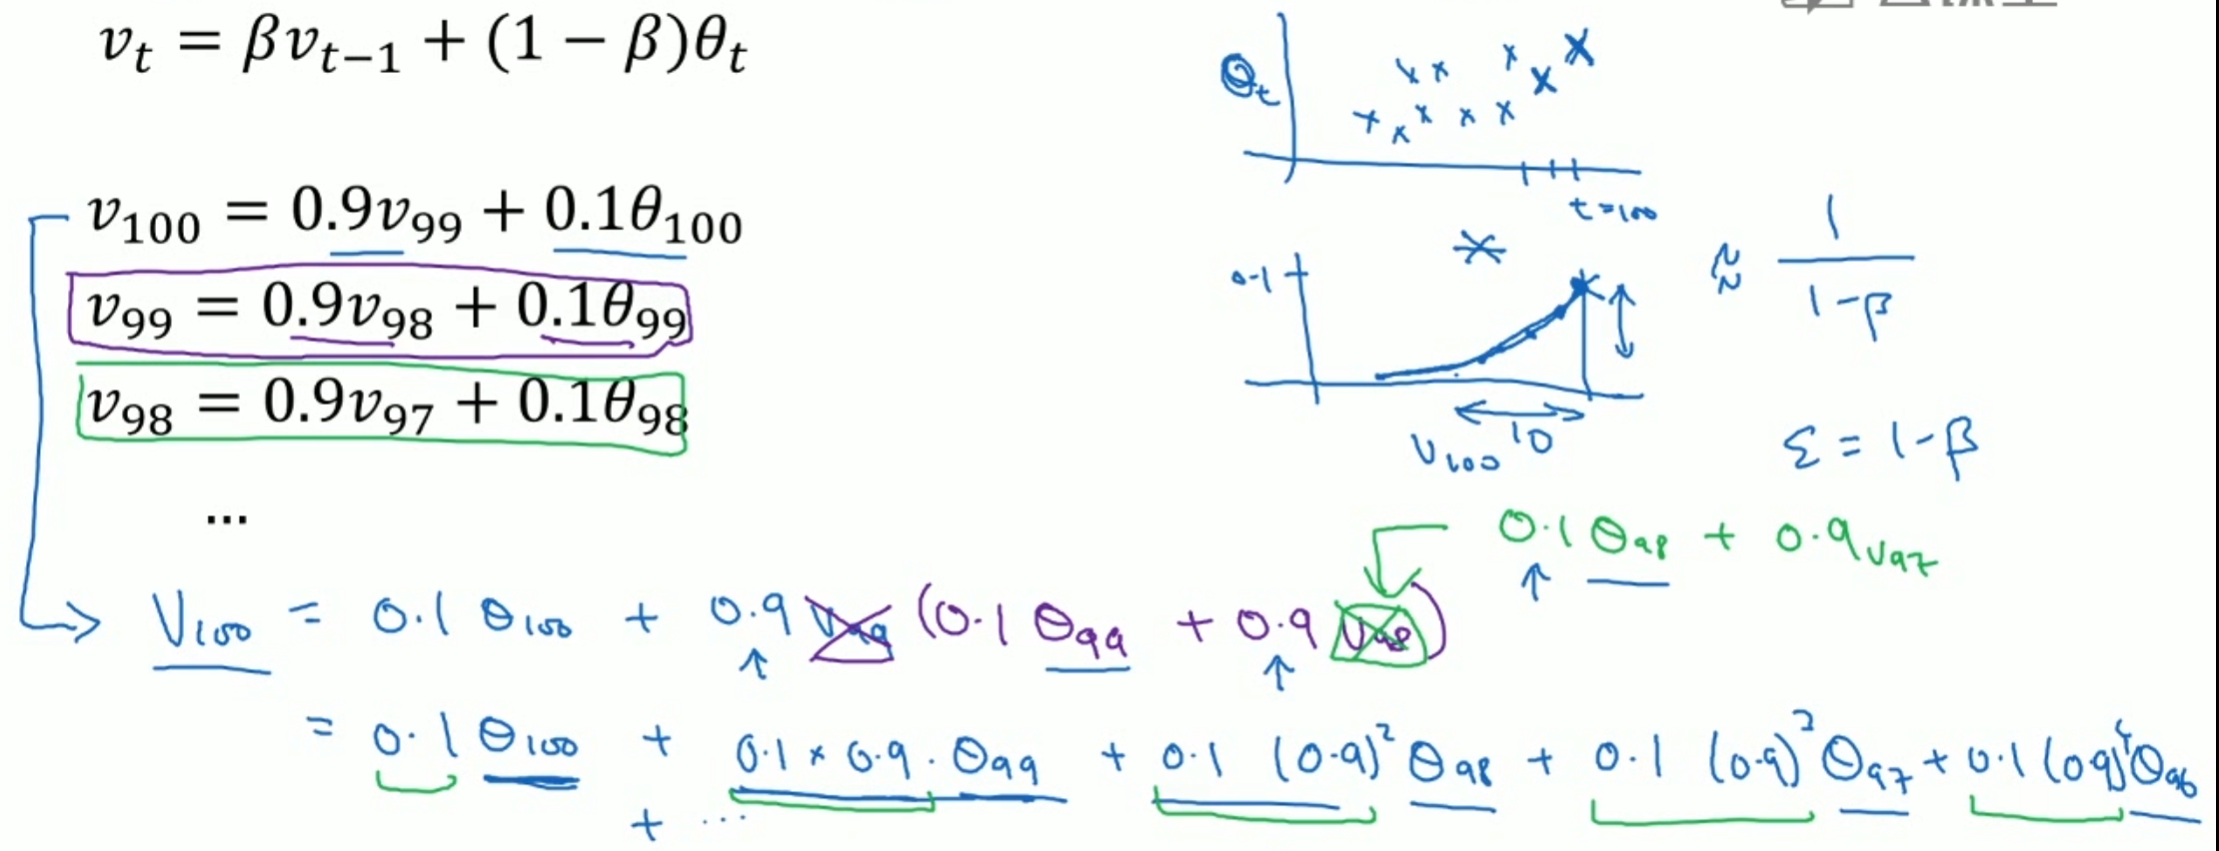 v_t = βv_{t−1} + (1 − β)θ_t
θ_t
t=100
v_{100} = 0.9v_{99} + 0.1θ_{100}
v_{99} = 0.9v_{98} + 0.1θ_{99}
v_{98} = 0.9v_{97} + 0.1θ_{98}
...
0.1
10
V_{100}
≈ 1/(1-β)
ε = 1-β
0.1 θ_{98} + 0.9 v_{97}
V_{100} = 0.1 θ_{100} + 0.9 v_{99} (0.1 θ_{99} + 0.9 v_{98})
= 0.1 θ_{100} + 0.1 × 0.9 · θ_{99} + 0.1 (0.9)^2 θ_{98} + 0.1 (0.9)^3 θ_{97} + 0.1 (0.9)^4 θ_{96}
+ ...